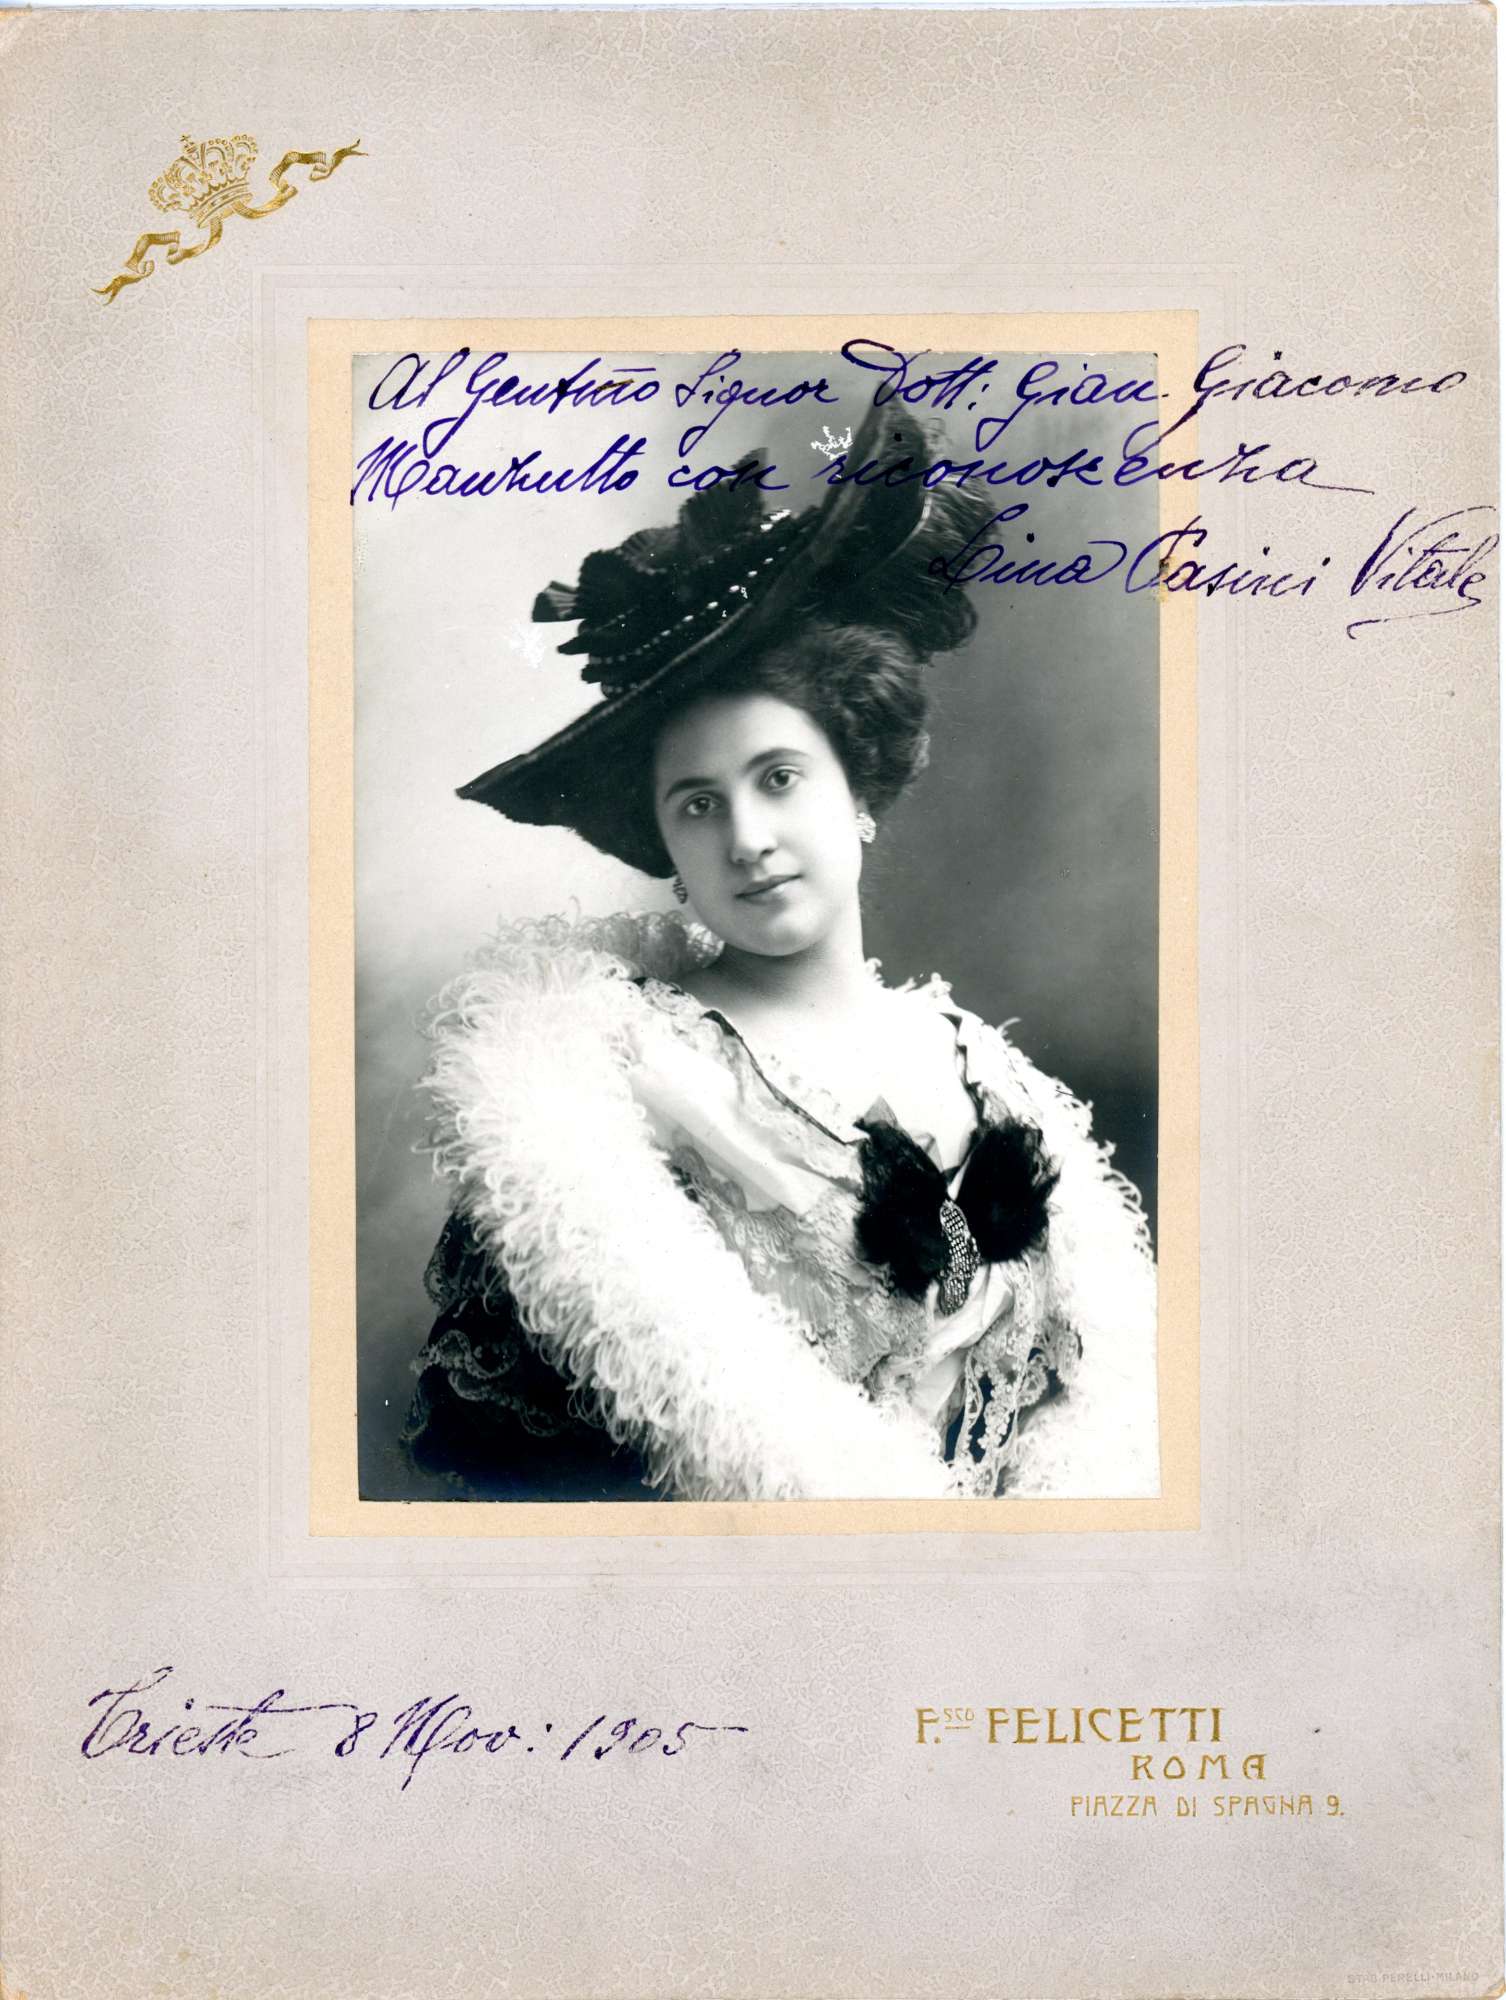 Al Gentmo Signor Dott: Gian Giacomo
Manzutto con riconoscenza
Lina Pasini Vitale
Trieste 8 Nov: 1905
F.sco FELICETTI
ROMA
PIAZZA DI SPAGNA 9.
STAB. PERELLI-MILANO